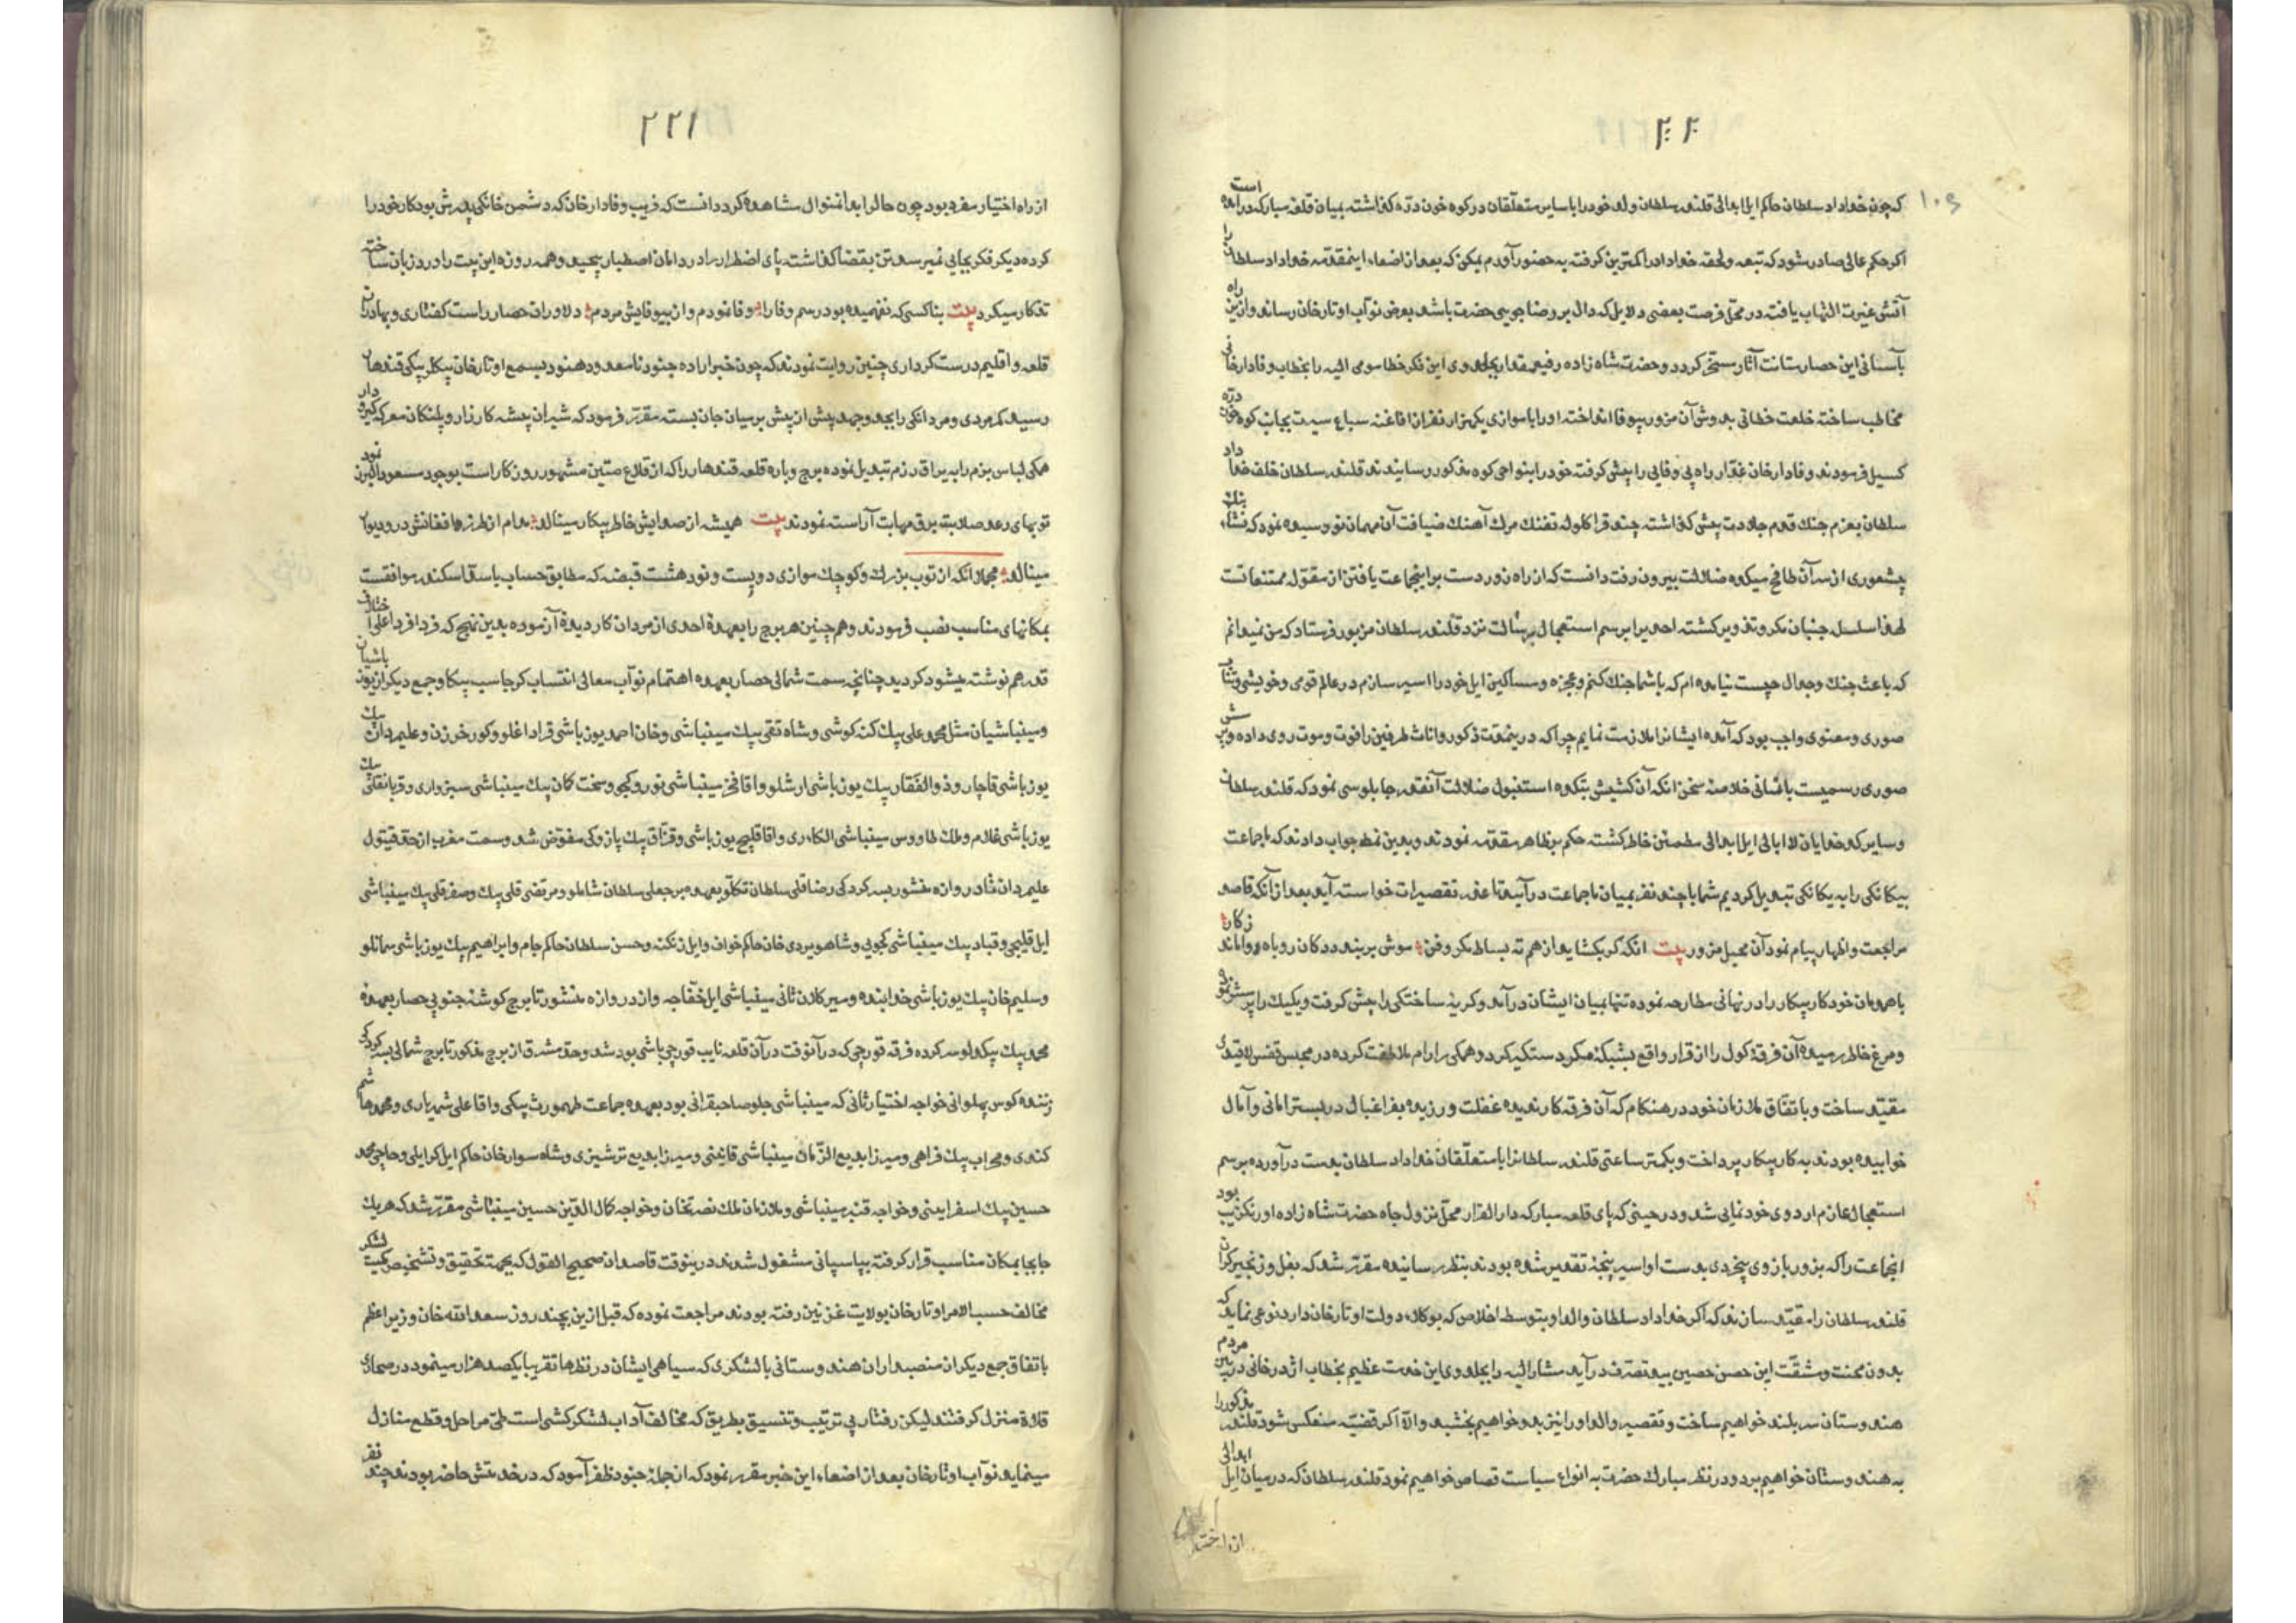 ۲۲۰
که چون خداداد سلطان حاکم ایل ابدالی قلندر سلطان ولد خود را با سایر متعلقان در کوه خون دره کذاشته بمیان قلعه مبارکه درآمده است
اکر حکم عالی صادر شود که تبعه و لحقه خداداد را کمترین کرفته به حضور آوردم یمکن که بعد از اضعاء اینمقدمه خداداد سلطان را
آتش غیرت التهاب یافته در محل فرصت بعضی دلایل که دال بر رضا جویی حضرت باشد بعرض نواب اوتار خان رساند و ازین راه
بآسانی این حصار متانت آثار مسخر کردد و حضرت شاه زاده رفیع مقدار بجلدوی این فکر خطا مومی الیه را بخطاب وفادار خانی
مخاطب ساخته خلعت خطائی بدوش آن مزور بیوفا انداخته او را با موازی یکهزار نفر از افاغنه سباع سیرت بجانب کوه خون دره
کسیل فرمودند وفادار خان غدار راه بی وفایی را پیش کرفته خود را بنواحی کوه مذکور رسانیدند قلندر سلطان خلف خداداد
سلطان بعزم جنك قدم جلادت پیش کذاشته چند قراکلوله تفنك مرك آهنك ضیافت آن مهمان نو رسیده نمود که نشاء بنك
بیشعوری از سر آن طافح میکده ضلالت بیرون رفت دانست که از راه زور دست بر اینجماعت یافتن از مقوله ممتنعاتست
لهذا سلسله جنبان مکر و تذویر کشته احدیرا برسم استعجال برسالت نزد قلندر سلطان مزبور فرستاد که من نمیدانم
که باعث جنك و جدال چیست نیامده ام که با شما جنك کنم و عجزه و مساکین ایل خود را اسیر سازم در عالم قومی و خویشی
صوری و معنوی واجب بود که آمده ایشانرا ملازمت نمایم چرا که درینمدت ذکور و اناث طرفین را فوت و موت روی داده و پرسش
صوری رسمیست باستانی خلاصه سخن انکه آن کشیش بتکده استنبول ضلالت آنقدر چابلوسی نمود که قلندر سلطان
و سایر کدخدایان لاابالی ایل ابدالی مطمئن خاطر کشته حکم بظاهر مقدمه نمودند و بدین نمط جواب دادند که ماجماعت
بیکانکی را به یکانکی تبدیل کردیم شما با چند نفر بمیان ماجماعت درآیید تا عذر تقصیرات خواسته آید بعد از آنکه قاصد
مراجعت و اظهار پیام نمود آن محیل مزور بیت انکه کر بکشاید از هم ته بساط مکر و فن
با همدمان خود کار پیکار را در نهانی مطارحه نموده تنها بمیان ایشان درآمد و کریه ساختکی را پیش کرفت و یکیك را پرسش نمود
و مرغ خاطر رمیده آن فرقه کول را از قرار واقع بشبکه مکر دستکیر کرد و همکی را رام ملاطفت کرده در محبس قفس لاقیدی
مقید ساخت و باتفاق ملازمان خود در هنکام که آن فرقه کار ندیده غفلت ورزیده بفراغبال در بستر امانی و آمال
خوابیده بودند به کار پیکار پرداخت و بکمتر ساعتی قلندر سلطانرا با متعلقان خداداد سلطان بدست درآورده برسم
استعجال عازم اردوی خود نمایی شد و در حینی که پای قلعه مبارکه دارالقرار محل نزول جاه حضرت شاه زاده اورنکزیب بود
انجماعت را که بزور بازوی بیخردی بدست او اسیر پنجه تقدیر شده بودند بنظر رسانیده مقرر شد که بغل و زنجیر کران
قلندر سلطان را مقید سازند که اکر خداداد سلطان والد او بتوسط اخلاص که بوکلاء دولت اوتار خان دارد نوعی نماید که
بدون محنت و مشقت این حصن حصین بید تصرف درآید مشارالیه را بجلدوی این خدمت عظیم بخطاب اژدر خانی در بین مردم
هندوستان سربلند خواهیم ساخت و تقصیر والد او را نیز بدو خواهیم بخشید والا اکر قضیه منعکس شود قلندر مذکور را
به هندوستان خواهیم برد و در نظر مبارك حضرت به انواع سیاست قصاص خواهیم نمود قلندر سلطان که در میان ایل ابدالی
۲۲۱
از راه اختیار سفره بود چون حال را بدانمنوال مشاهده کرد دانست که فریب وفادار خان که دشمن خانکی پدرش بود کار خود را
کرده دیکر فکر بجایی نمیرسد تن بقضا کذاشته پای اضطرار را در دامان اصطبار پیچید و همه روزه این بیت را ورد زبان ساخته
تذکار میکرد بیت بناکسی که نفهمیده بود رسم وفا را وفا نمودم و از بیوفایش مردم دلاوران حصار راست کفتاری و بهادران
قلعه و اقلیم درست کرداری چنین روایت نمودند که چون خبر اراده جنود نامعدود هنود بسمع اوتار خان بیکلر بیکی قندهار
رسید کمر مردی و مردانکی را بجد و جهد بیش از پیش بر میان جان بسته مقرر فرمود که شیران بیشه کارزار و پلنکان معرکه کیرودار
همکی لباس بزم را به یراق رزم تبدیل نموده برج و باره قلعه قندهار را که از قلاع متین مشهور روزکار است بوجود مسعود البرز نمود
توبهای رعد صلابت برق مهابت آراسته نمودند بیت همیشه از صدایش خاطر پیکار مینالد
مینالد مجملا انکه از توب بزرك و کوچك موازی دویست و نود هشت قبضه که مطابق حساب با سد اسکندر موافقست
بمکانهای مناسب نصب فرمودند و هم چنین هر برج را بعهدهٔ احدی از مردان کار دیدهٔ آزموده بدین نهج که فردا فردا
قدرهم نوشته میشود کردید چنانچه سمت شمالی حصار بعهده اهتمام نواب معالی انتساب کرجاسب بیکا و جمع دیکر از یوزباشیان
و مینباشیان مثل محمد علی بیك و شاه تقی بیك مینباشی و خان احمد یوزباشی قراداغلو و کور خرزن و علیمردان بیك
یوزباشی قاجار و ذوالفقار بیك یوزباشی ارشلو و اقا فخر مینباشی نوروکجی و سخت کمان بیك مینباشی سبزواری و قربانقلی بیك
یوزباشی غلام و ملك طاووس مینباشی الکاءری و اقا قلیج یوزباشی و قزاق بیك بازوکی مفوض شد و سمت مغرب از حد قیتول
علیمردان تا دروازه مشور بسرکردکی رضا قلی سلطان تکلو بعهده برجعلی سلطان شاملو و مرتضی قلی بیك و صفر قلی بیك مینباشی
ایل قلیجی و قباد بیك مینباشی کجویی و شاهویردی خان حاکم خواف و ایل زنکنه و حسن سلطان حاکم جام و ابراهیم بیك یوزباشی سمانلو
و سلیم خان بیك یوزباشی خدابنده و میر کلان ثانی مینباشی ایل خفاجه و از دروازه مشور تا برج کوشه جنوبی حصار بعهدهٔ
محمد بیك بیکدلو سرکرده فرقه قورچی که در آنوقت در آن قلعه نایب قورچی باشی بود شد و حد مشرق از برج مذکور تا برج شمالی بسرکردکی
زننده کوس پهلوانی خواجه اختیار ثانی که مینباشی جلو صاحبقرانی بود بعهده جماعت طهمورث بیکی و اقا علی شهریاری و محمد هاشم
کندی و محراب بیك فراهی و میرزا بدیع الزمان مینباشی قاینی و میرزا بدیع ترشیزی و شاه سوار خان حاکم ایل کرایلی و حاجی محمد
حسین بیك اسفراینی و خواجه قنبر مینباشی و ملازمان ملك نصرتخان و خواجه کمال الدین حسین مینباشی مقرر شد که هر یك
جابجا بمکان مناسب قرار کرفته بپاسبانی مشغول شدند درینوقت قاصدان صحیح القول که بجهة تحقیق و تشخیص کمیت لشکر
مخالف حسب الامر اوتار خان بولایت غزنین رفته بودند مراجعت نموده که قبل ازین بچند روز سعدالله خان وزیر اعظم
باتفاق جمع دیکر از منصبداران هندوستانی با لشکری که سیاهی ایشان در نظرها تقریبا یکصد هزار مینمود در صحاری
قلات منزل کرفتند لیکن رفتار بی ترتیب و تنسیق بطریق که مخالف آداب لشکر کشی است طی مراحل و قطع منازل
مینماید نواب اوتار خان بعد از اضعاء این خبر مقرر نمود که از جمله جنود ظفر آمود که در خدمتش حاضر بودند چند نفر